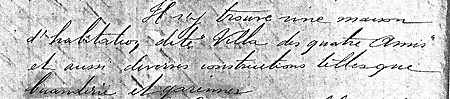 Il s'y trouve une maison
d'habitation dite "Villa des quatre Amis"
et aussi diverses constructions telles que
buanderie et garennes